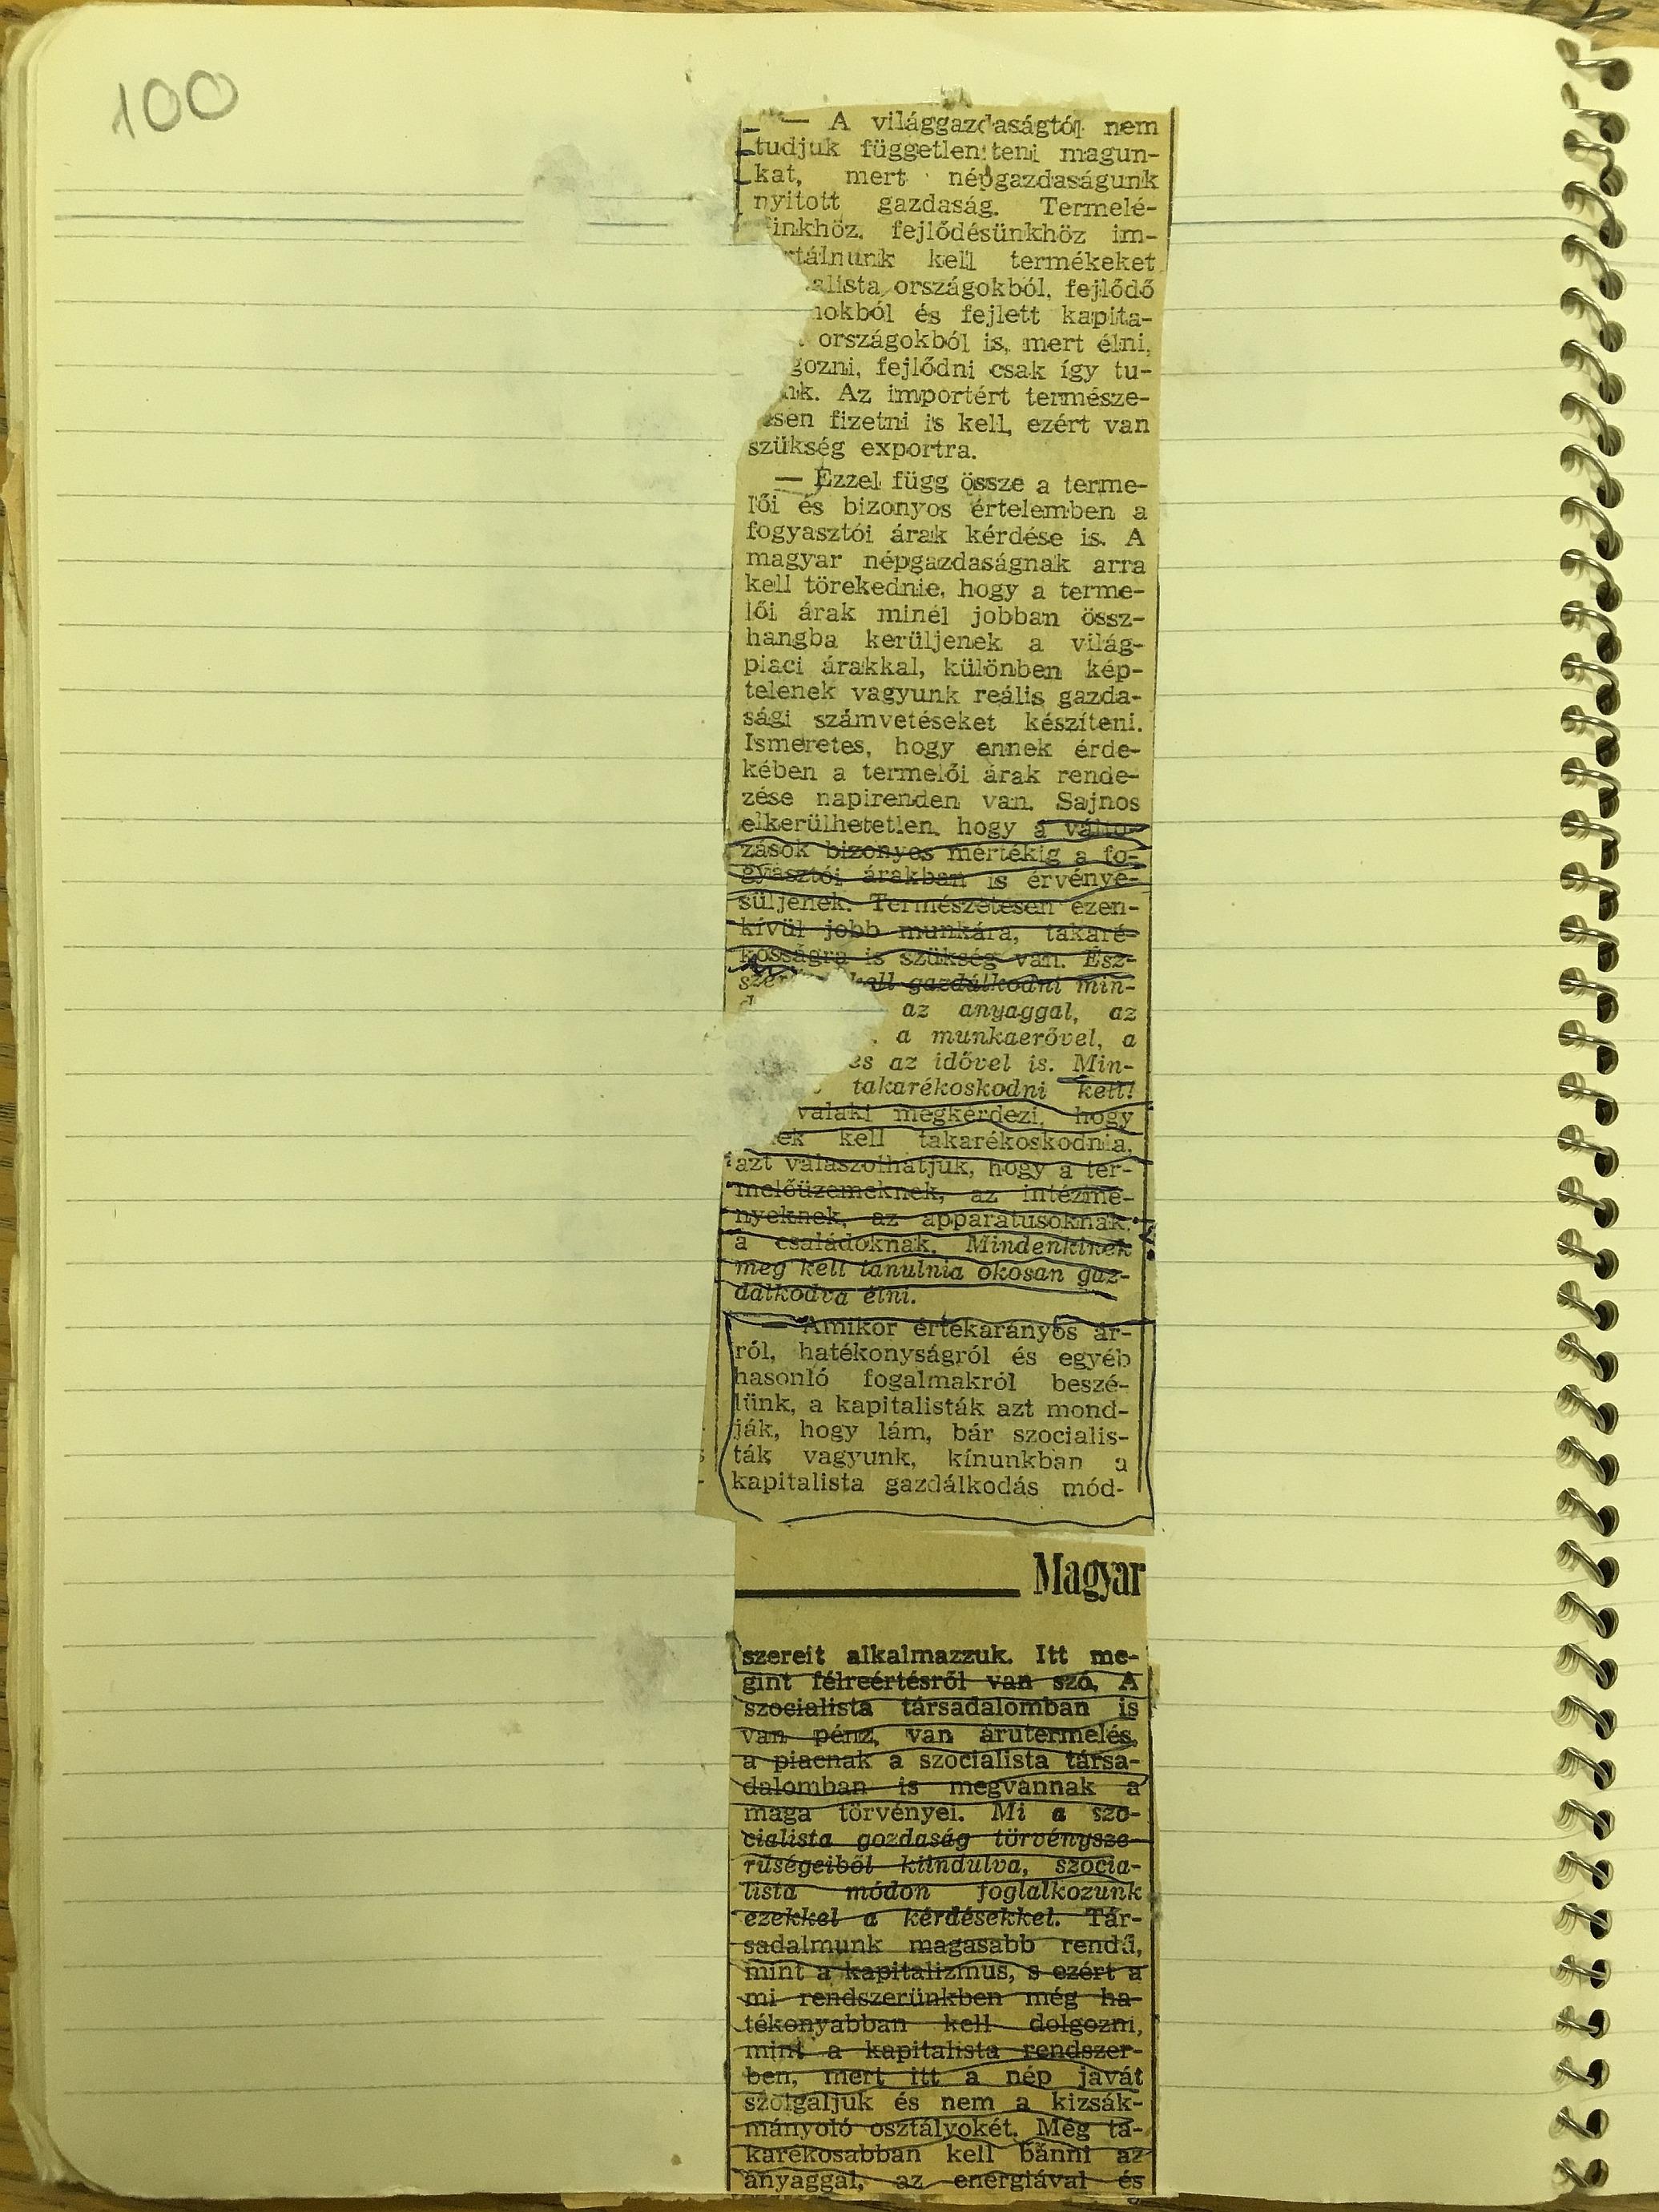 100
— A világgazdaságtól nem
tudjuk függetleníteni magun-
kat, mert népgazdaságunk
nyitott gazdaság. Termelé-
inkhöz, fejlődésünkhöz im-
rtálnunk kell termékeket
alista országokból, fejlődő
okból és fejlett kapita-
országokból is, mert élni,
gozni, fejlődni csak így tu-
nk. Az importért természe-
esen fizetni is kell, ezért van
szükség exportra.
— Ezzel függ össze a terme-
lői és bizonyos értelemben a
fogyasztói árak kérdése is. A
magyar népgazdaságnak arra
kell törekednie, hogy a terme-
lői árak minél jobban össz-
hangba kerüljenek a világ-
piaci árakkal, különben kép-
telenek vagyunk reális gazda-
sági számvetéseket készíteni.
Ismeretes, hogy ennek érde-
kében a termelői árak rende-
zése napirenden van. Sajnos
elkerülhetetlen, hogy aválto-
zások bizonyos mértékig a fo-
gyasztói árakban is érvénye-
süljenek. Természetesen ezen-
kívül jobb munkára, takaré-
kosságra is szükség van. Ész-
szer kell gazdálkodni min-
d az anyaggal, az
, a munkaerővel, a
es az idővel is. Min-
takarékoskodni kell!
valaki megkérdezi, hogy
ek kell takarékoskodnia,
azt válaszolhatjuk, hogy a ter-
melőüzemeknek, az intézmé-
nyeknek, az apparátusoknak,
a családoknak. Mindenkinek
meg kell tanulnia okosan gaz-
dálkodva élni.
— Amikor értékarányos ár-
ról, hatékonyságról és egyéb
hasonló fogalmakról beszé-
lünk, a kapitalisták azt mond-
ják, hogy lám, bár szocialis-
ták vagyunk, kínunkban a
kapitalista gazdálkodás mód-
Magyar
szereit alkalmazzuk. Itt me-
gint félreértésről van szó. A
szocialista társadalomban is
van pénz, van árutermelés,
a piacnak a szocialista társa-
dalomban is megvannak a
maga törvényei. Mi a szo-
cialista gozdaság törvénysze-
rűségeiből kiindulva, szocia-
lista módon foglalkozunk
ezekkel a kérdésekkel. Tár-
sadalmunk magasabb rendű,
mint a kapitalizmus, s ezért a
mi rendszerünkben még ha-
tékonyabban kell dolgozni,
mint a kapitalista rendszer-
ben, mert itt a nép javát
szolgáljuk és nem a kizsák-
mányoló osztályokét. Még ta-
karékosabban kell bánni az
anyaggal, az energiával és